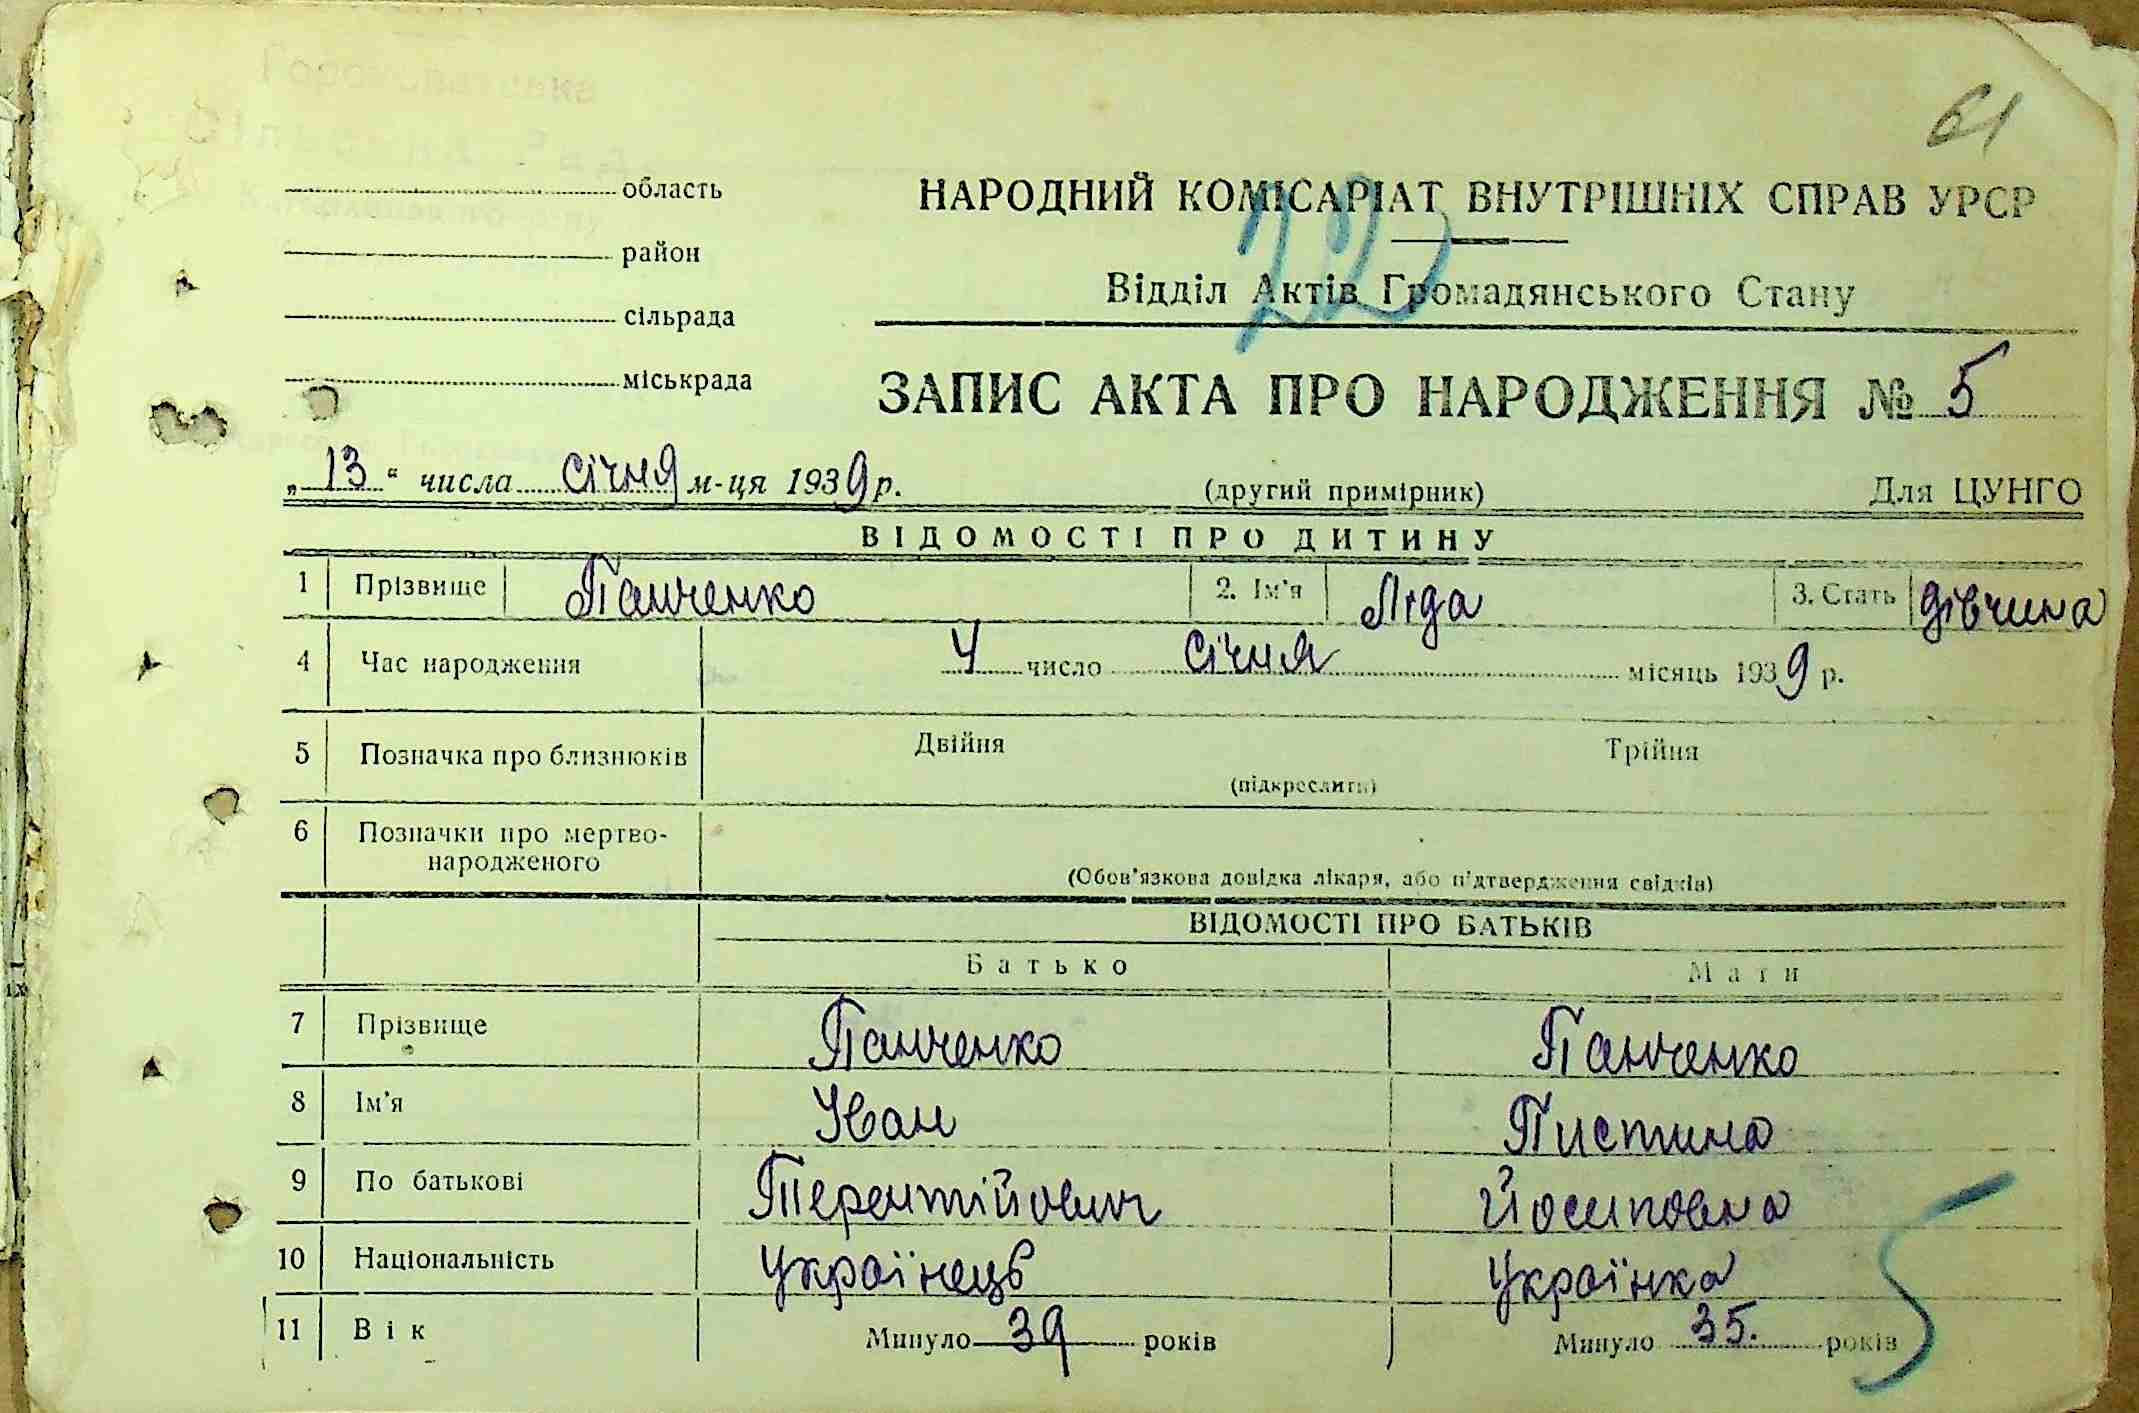 61
область
НАРОДНИЙ КОМІСАРІАТ ВНУТРІШНІХ СПРАВ УРСР
район
22
Відділ Актів Громадянського Стану
сільрада
міськрада
ЗАПИС АКТА ПРО НАРОДЖЕННЯ № 5
„13“ числа січня м-ця 1939 р. (другий примірник) Для ЦУНГО
ВІДОМОСТІ ПРО ДИТИНУ
1 Прізвище Панченко 2. Ім'я Ліда 3. Стать дівчина
4 Час народження 4 число січня місяць 1939 р.
5 Позначка про близнюків Двійня Трійня
(підкреслити)
6 Позначки про мертво-
народженого
(Обов'язкова довідка лікаря, або підтвердження свідків)
ВІДОМОСТІ ПРО БАТЬКІВ
Батько Мати
7 Прізвище Панченко Панченко
8 Ім'я Іван Пистина
9 По батькові Терентійович Йосиповна
10 Національність Українець Українка
5
11 Вік Минуло 39 років Минуло 35. років